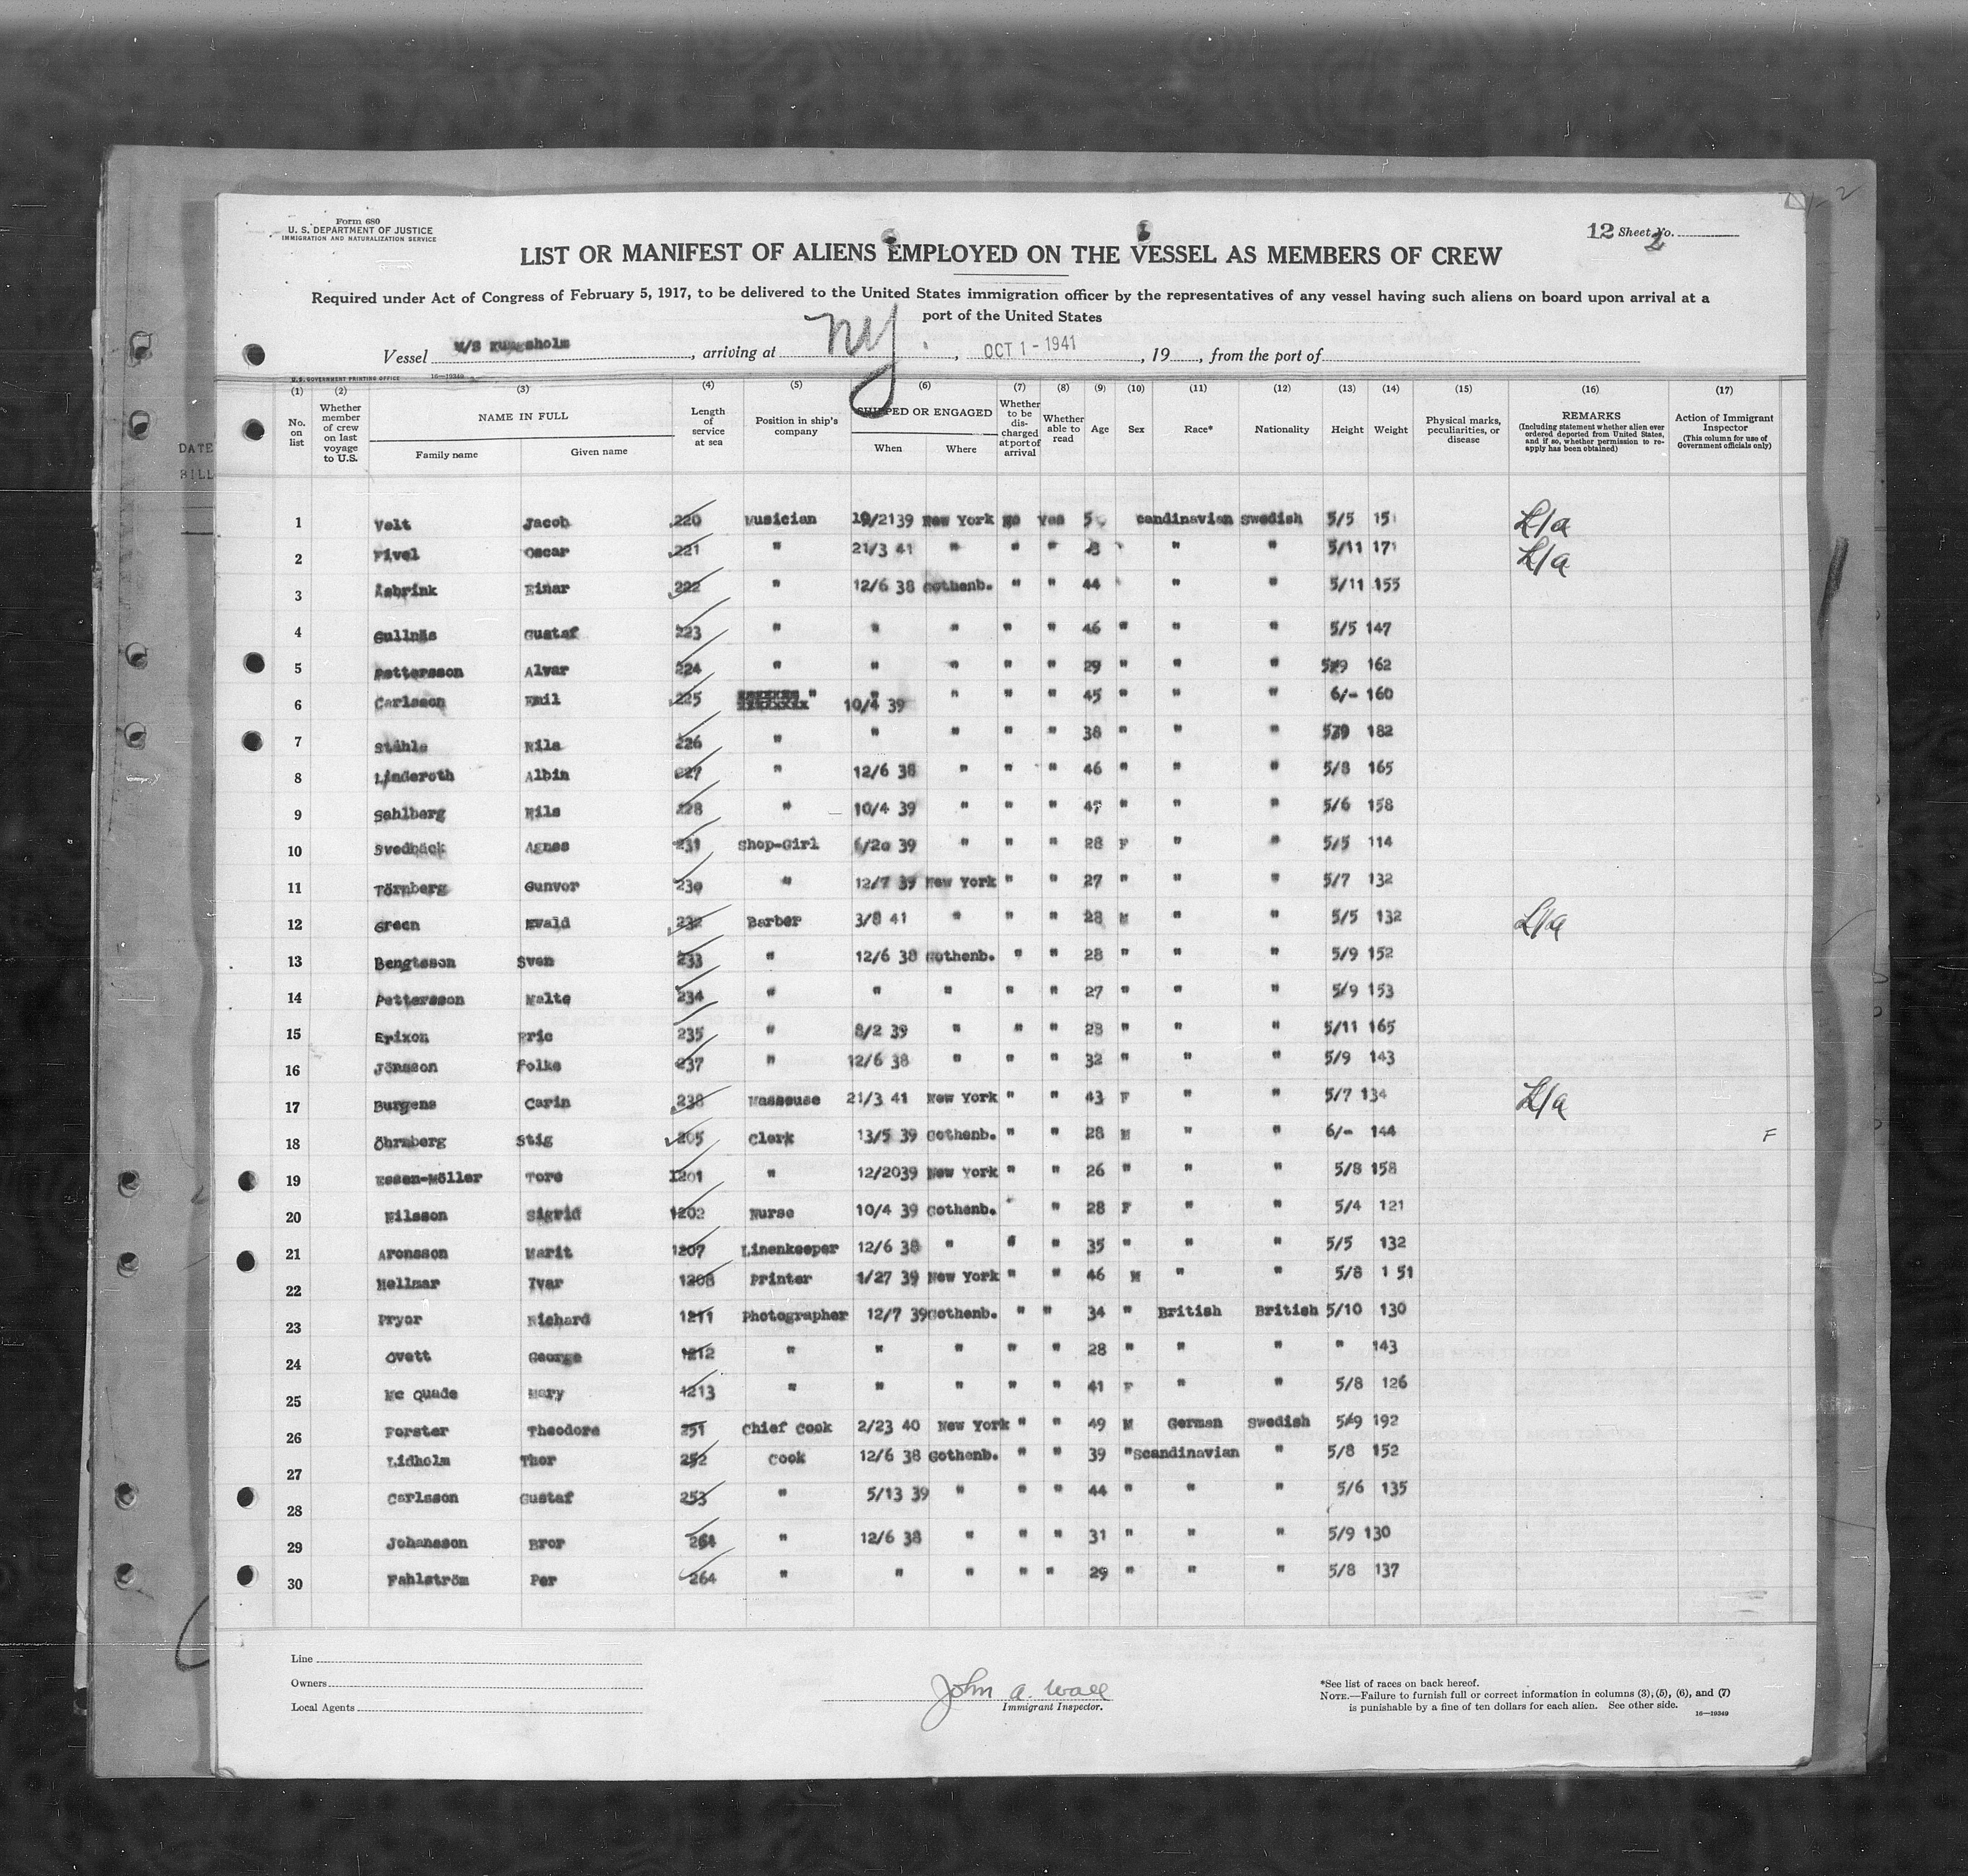 Form 680
U. S. DEPARTMENT OF JUSTICE
IMMIGRATION AND NATURALIZATION SERVICE
12 Sheet No. 2
LIST OR MANIFEST OF ALIENS EMPLOYED ON THE VESSEL AS MEMBERS OF CREW
Required under Act of Congress of February 5, 1917, to be delivered to the United States immigration officer by the representatives of any vessel having such aliens on board upon arrival at a
port of the United States
Vessel M/S Kungsholm, arriving at NY, OCT 1-1941, 19, from the port of
U. S. GOVERNMENT PRINTING OFFICE 16—19349
DATE
BILL
(1) (2) (3) (4) (5) (6) (7) (8) (9) (10) (11) (12) (13) (14) (15) (16) (17)
No. on list
Whether member of crew on last voyage to U.S.
NAME IN FULL
Family name Given name
Length of service at sea
Position in ship's company
SHIPPED OR ENGAGED
When Where
Whether to be discharged at port of arrival
Whether able to read
Age Sex Race* Nationality Height Weight
Physical marks, peculiarities, or disease
REMARKS
(Including statement whether alien ever ordered deported from United States, and if so, whether permission to reapply has been obtained)
Action of Immigrant Inspector
(This column for use of Government officials only)
1 Velt Jacob 220 Musician 39 New York No Yes Scandinavian Swedish 5/5 L/a
2 Fivel Oscar 221 " 21/3 41 " " " " " 5/11 171 L/a
3 Åsbrink Einar 222 " 12/6 38 Gothenb. " " 44 " " 5/11 155
4 Gullnäs Gustaf 223 " " " " " 46 " " " 5/5 147
5 Pettersson Alvar 224 " " " " " 29 " " " 5/9 162
6 Carlsson Emil 225 " " 10/4 39 " " " 45 " " " 6/- 160
7 Ståhle Nils 226 " " " " " 38 " " " 182
8 Linderoth Albin 227 " 12/6 38 " " " 46 " " " 5/8 165
9 Sahlberg Nils 228 " 10/4 39 " " " 47 " " " 5/6 158
10 Svedbäck Agnes 231 Shop-Girl 6/20 39 " " " 28 F " " 5/5 114
11 Törnberg Gunvor 230 " 12/7 39 New York " " 27 " " " 5/7 132
12 Green Evald 232 Barber 3/8 41 " " " 28 M " " 5/5 132 L/a
13 Bengtsson Sven 233 " 12/6 38 Gothenb. " " 28 " " " 5/9 152
14 Pettersson Malte 234 " " " " " 27 " " " 5/9 153
15 Erixon Eric 235 " 8/2 39 " " " 28 " " " 5/11 165
16 Jönsson Folke 237 " 12/6 38 " " " 32 " " " 5/9 143
17 Burgens Carin 238 Masseuse 21/3 41 New York " " 43 F " " 5/7 134 L/a
18 Öhrnberg Stig 205 Clerk 13/5 39 Gothenb. " " 28 M " " 6/- 144 F
19 Essen-Möller Tore 1201 " 12/2039 New York " " 26 " " " 5/8 158
20 Nilsson Sigrid 1202 Nurse 10/4 39 Gothenb. " " 28 F " " 5/4 121
21 Aronsson Marit 1207 Linenkeeper 12/6 38 " " " 35 " " " 5/5 132
22 Mellmar Ivar 1208 Printer 1/27 39 New York " " 46 M " " 5/8 1 51
23 Pryor Richard 1211 Photographer 12/7 39 Gothenb. " " 34 " British British 5/10 130
24 Ovett George 1212 " " " " " 28 " " " " 143
25 Mc Quade Mary 1213 " " " " " 41 F " " 5/8 126
26 Forster Theodore 251 Chief Cook 2/23 40 New York " " 49 M German Swedish 5/9 192
27 Lidholm Thor 252 Cook 12/6 38 Gothenb. " " 39 " Scandinavian " 5/8 152
28 Carlsson Gustaf 253 " 5/13 39 " " " 44 " " " 5/6 135
29 Johansson Bror " 12/6 38 " " " 31 " " " 5/9 130
30 Fahlström Per 264 " " " " " 29 " " " 5/8 137
Line
Owners
Local Agents
John A. Wall
Immigrant Inspector.
*See list of races on back hereof.
NOTE.—Failure to furnish full or correct information in columns (3), (5), (6), and (7)
is punishable by a fine of ten dollars for each alien. See other side.
16—19349